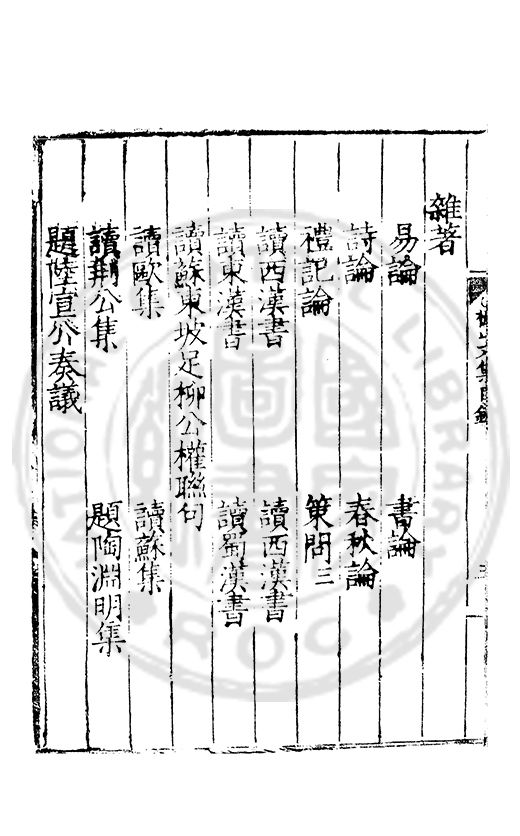 雜著
易論　書論
詩論　春秋論
禮記論　策問三
讀西漢書　讀西漢書
讀東漢書　讀蜀漢書
讀蘇東坡足柳公權聯句
讀歐集　讀蘇集
讀荊公集　題陶淵明集
題陸宣公奏議